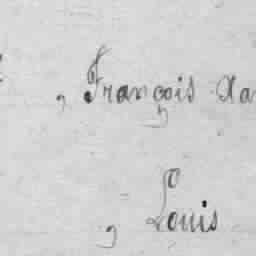 , François Xa
, Louis